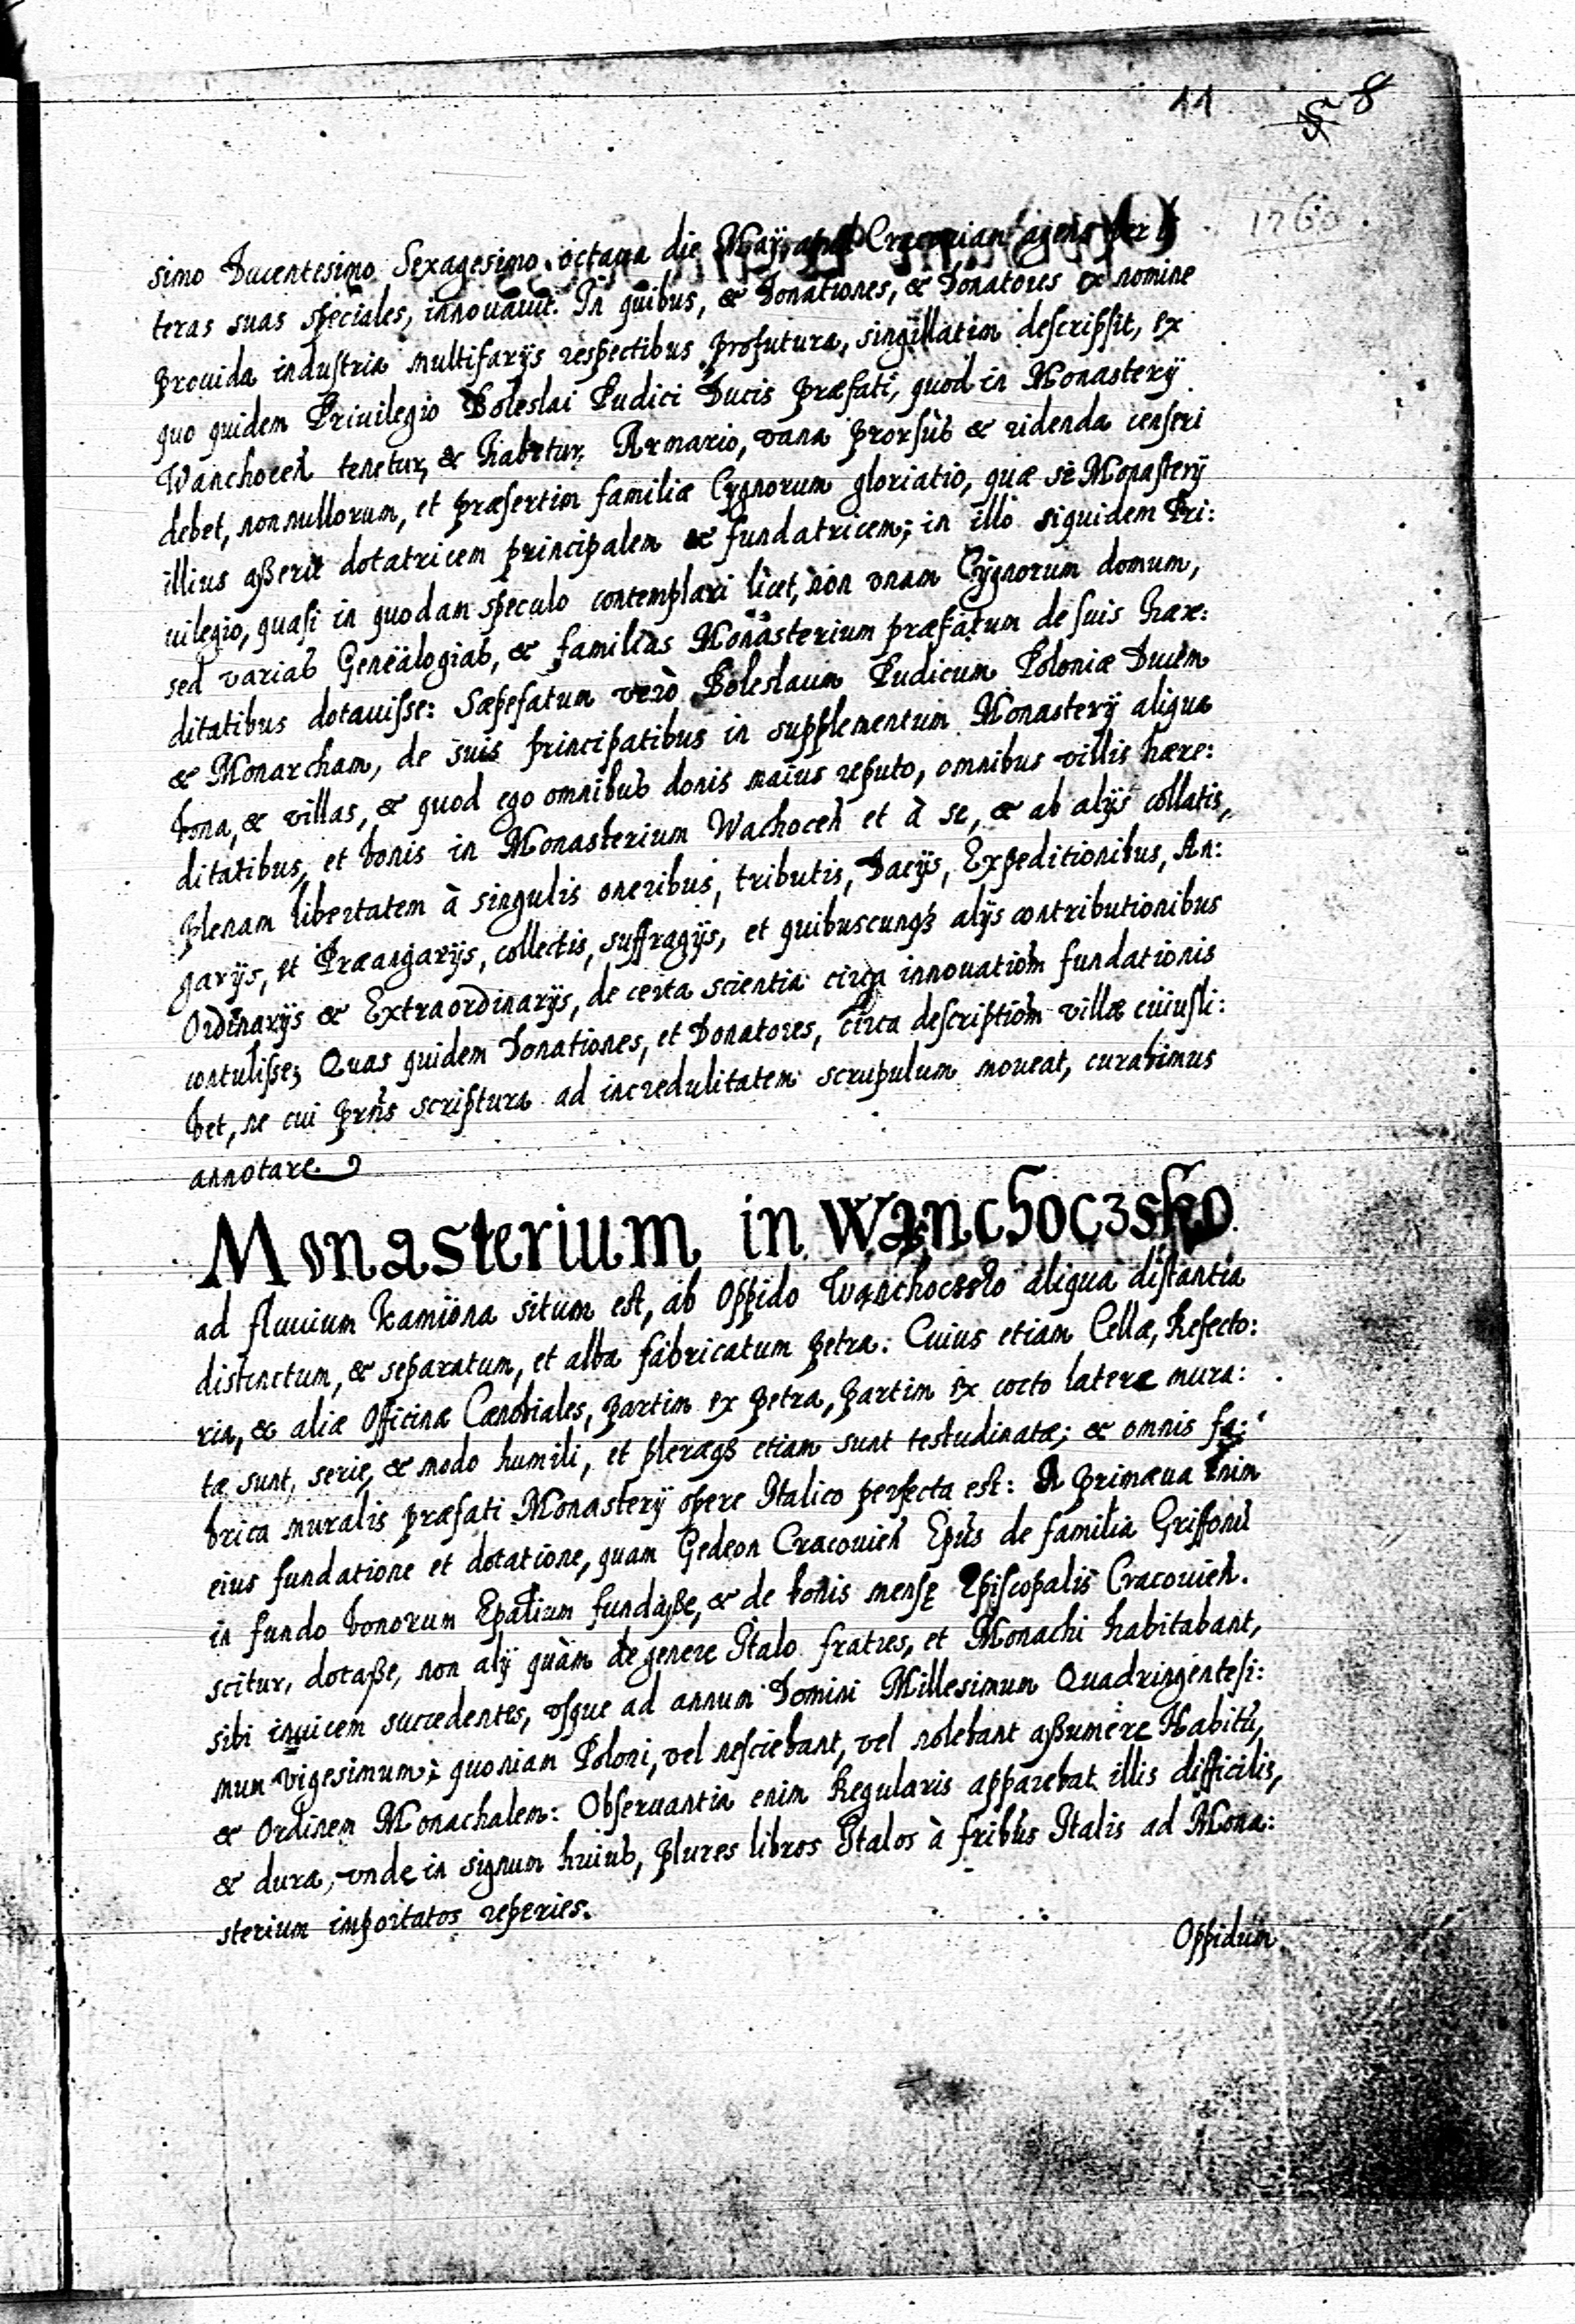 11 8
1260
simo Ducentesimo Sexagesimo octaua die Maÿ, apud Cracouiam agens per lit
teras suas speciales, innouauit. In quibus, & Donationes, & Donatores ex nomine
prouida industria multifarÿs respectibus profutura, singillatim descripsit, ex
quo quidem Priuilegio Boleslai Pudici Ducis præfati, quod in Monasterÿ
Wanchoceñ tenetur, & habetur, Armario, vana prorsùs & ridenda censeri
debet, nonnullorum, et præsertim familiæ Cygnorum gloriatio, quæ se Monasterÿ
illius aßerit dotatricem principalem & fundatricem; in illo siquidem Pri:
uilegio, quasi in quodam speculo contemplari licet, non vnam Cÿgnorum domum,
sed varias Geneälogias, & familias Monasterium præfatum de suis hære:
ditatibus dotauisse: Sæpefatum verò Boleslaum Pudicum Poloniæ Ducem
& Monarcham, de suis principatibus in supplementum Monasterÿ aliqua
bona, & villas, & quod ego omnibus donis maius reputo, omnibus villis hære:
ditatibus, et bonis in Monasterium Wachoceñ et à se, & ab alÿs collatis,
plenam libertatem à singulis oneribus, tributis, Dacÿs, Expeditionibus, An:
garÿs, et Præangarÿs, collectis, suffragÿs, et quibuscunqȝ alÿs contributionibus
Ordinarÿs & Extraordinarÿs, de certa scientia circa innouatiom̃ fundationis
contulisse; Quas quidem Donationes, et Donatores, circa descriptiom̃ villæ cuiusli:
bet, ne cui pr̃ns scriptura ad incredulitatem scrupulum moueat, curabimus
annotare
Monasterium in Wanchoczsko
ad fluuium Kamiona situm est, ab Oppido Wanchoczsko aliqua distantia
distinctum, & separatum, et alba fabricatum petra: Cuius etiam Cellæ, Refecto:
ria, & aliæ Officinæ Cænobiales, partim ex petra, partim ex cocto latere mura:
tæ sunt, serie, & modo humili, et pleræqȝ etiam sunt testudinatæ; & omnis fa:
brica muralis præfati Monasterÿ opere Italico perfecta est: A primæua enim
eius fundatione et dotatione, quam Gedeon Cracouieñ Ep̃us de familia Griffonũ
in fundo bonorum Ep̃alium fundaße, & de bonis mensę Episcopalis Cracouieñ.
scitur, dotaße, non alÿ quàm de genere Italo fratres, et Monachi habitabant,
sibi inuicem succedentes, vsque ad annum Domini Millesimum Quadringentesi:
mum vigesimum; quoniam Poloni, vel nesciebant, vel nolebant aßumere Habitũ,
& Ordinem Monachalem: Obseruantia enim Regularis apparebat illis difficilis,
& dura, vnde in signum huius, plures libros Italos à frib̃us Italis ad Mona:
sterium importatos reperies.
Oppidum